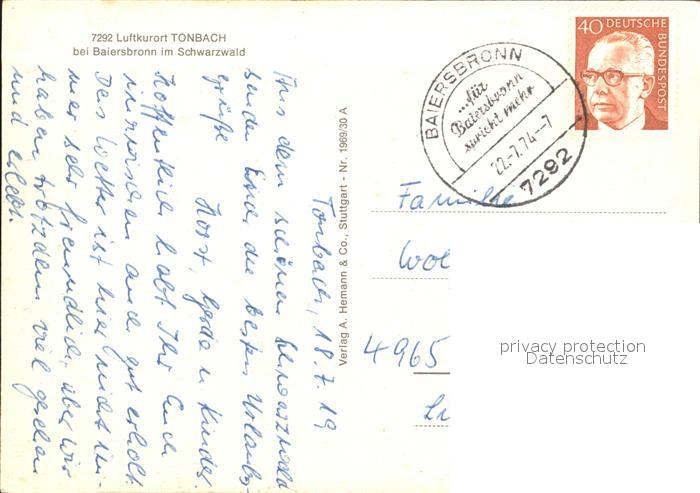 7292 Luftkurort TONBACH
bei Baiersbronn im Schwarzwald
Tonbach, 18.7.19
Aus dem schönen Schwarzwald
senden Euch die besten Urlaubs-
grüße Horst, Gerda u. Kinder.
Hoffentlich habt Ihr Euch
inzwischen auch gut erholt.
Das Wetter ist hier nicht im-
mer sehr freundlich, aber wir
haben trotzdem viel gesehen
und erlebt.
Verlag A. Hemann & Co., Stuttgart - Nr. 1969/30 A
BAIERSBRONN
...für
Baiersbronn
spricht mehr
22.-7.74--7
7292
40 DEUTSCHE
BUNDESPOST
Familie
Wol
4965
privacy protection
Datenschutz